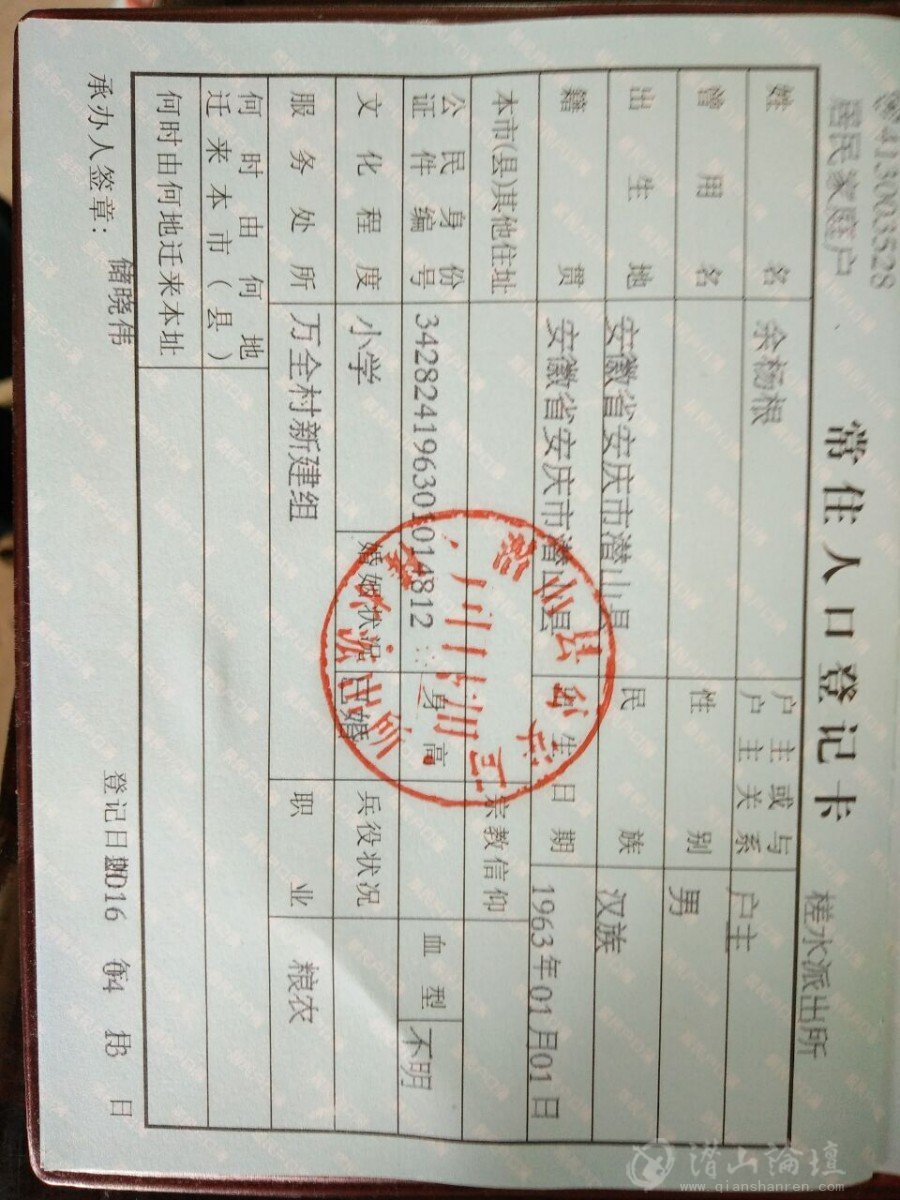 413003528
居民家庭户
槎水派出所
常住人口登记卡
姓名 余杨根 户主或与户主关系 户主
曾用名 性别 男
出生地 安徽省安庆市潜山县 民族 汉族
籍贯 安徽省安庆市潜山县 出生日期 1963年01月01日
本市(县)其他住址 宗教信仰
公民身份证件编号 342824196301014812 身高 血型 不明
文化程度 小学 婚姻状况 已婚 兵役状况
服务处所 万全村新建组 职业 粮农
何时由何地迁来本市(县)
何时由何地迁来本址
承办人签章: 储晓伟 登记日期 2016 04 13 日
潜山論壇
www.qianshanren.com